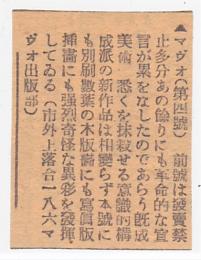 ▲マヴオ(第四號)　前號は發賣禁
止多分あの餘りにも革命的な宣
言が累をなしたのであらう既成
美術　悉くを抹殺せる意識的構
成派の新作品は相變らず本號に
も別刷數葉の木版畵にも寫眞版
挿畵にも强烈奇怪な異彩を發揮
してゐる(市外上落合一八六マ
ヴオ出版部)